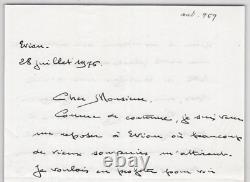 Evian.
28 juillet 1976.
Cher Monsieur,
Comme de coutume, je suis venu
me reposer à Evian où beaucoup
de vieux souvenirs m'attirent.
Je voulais en profiter pour vous